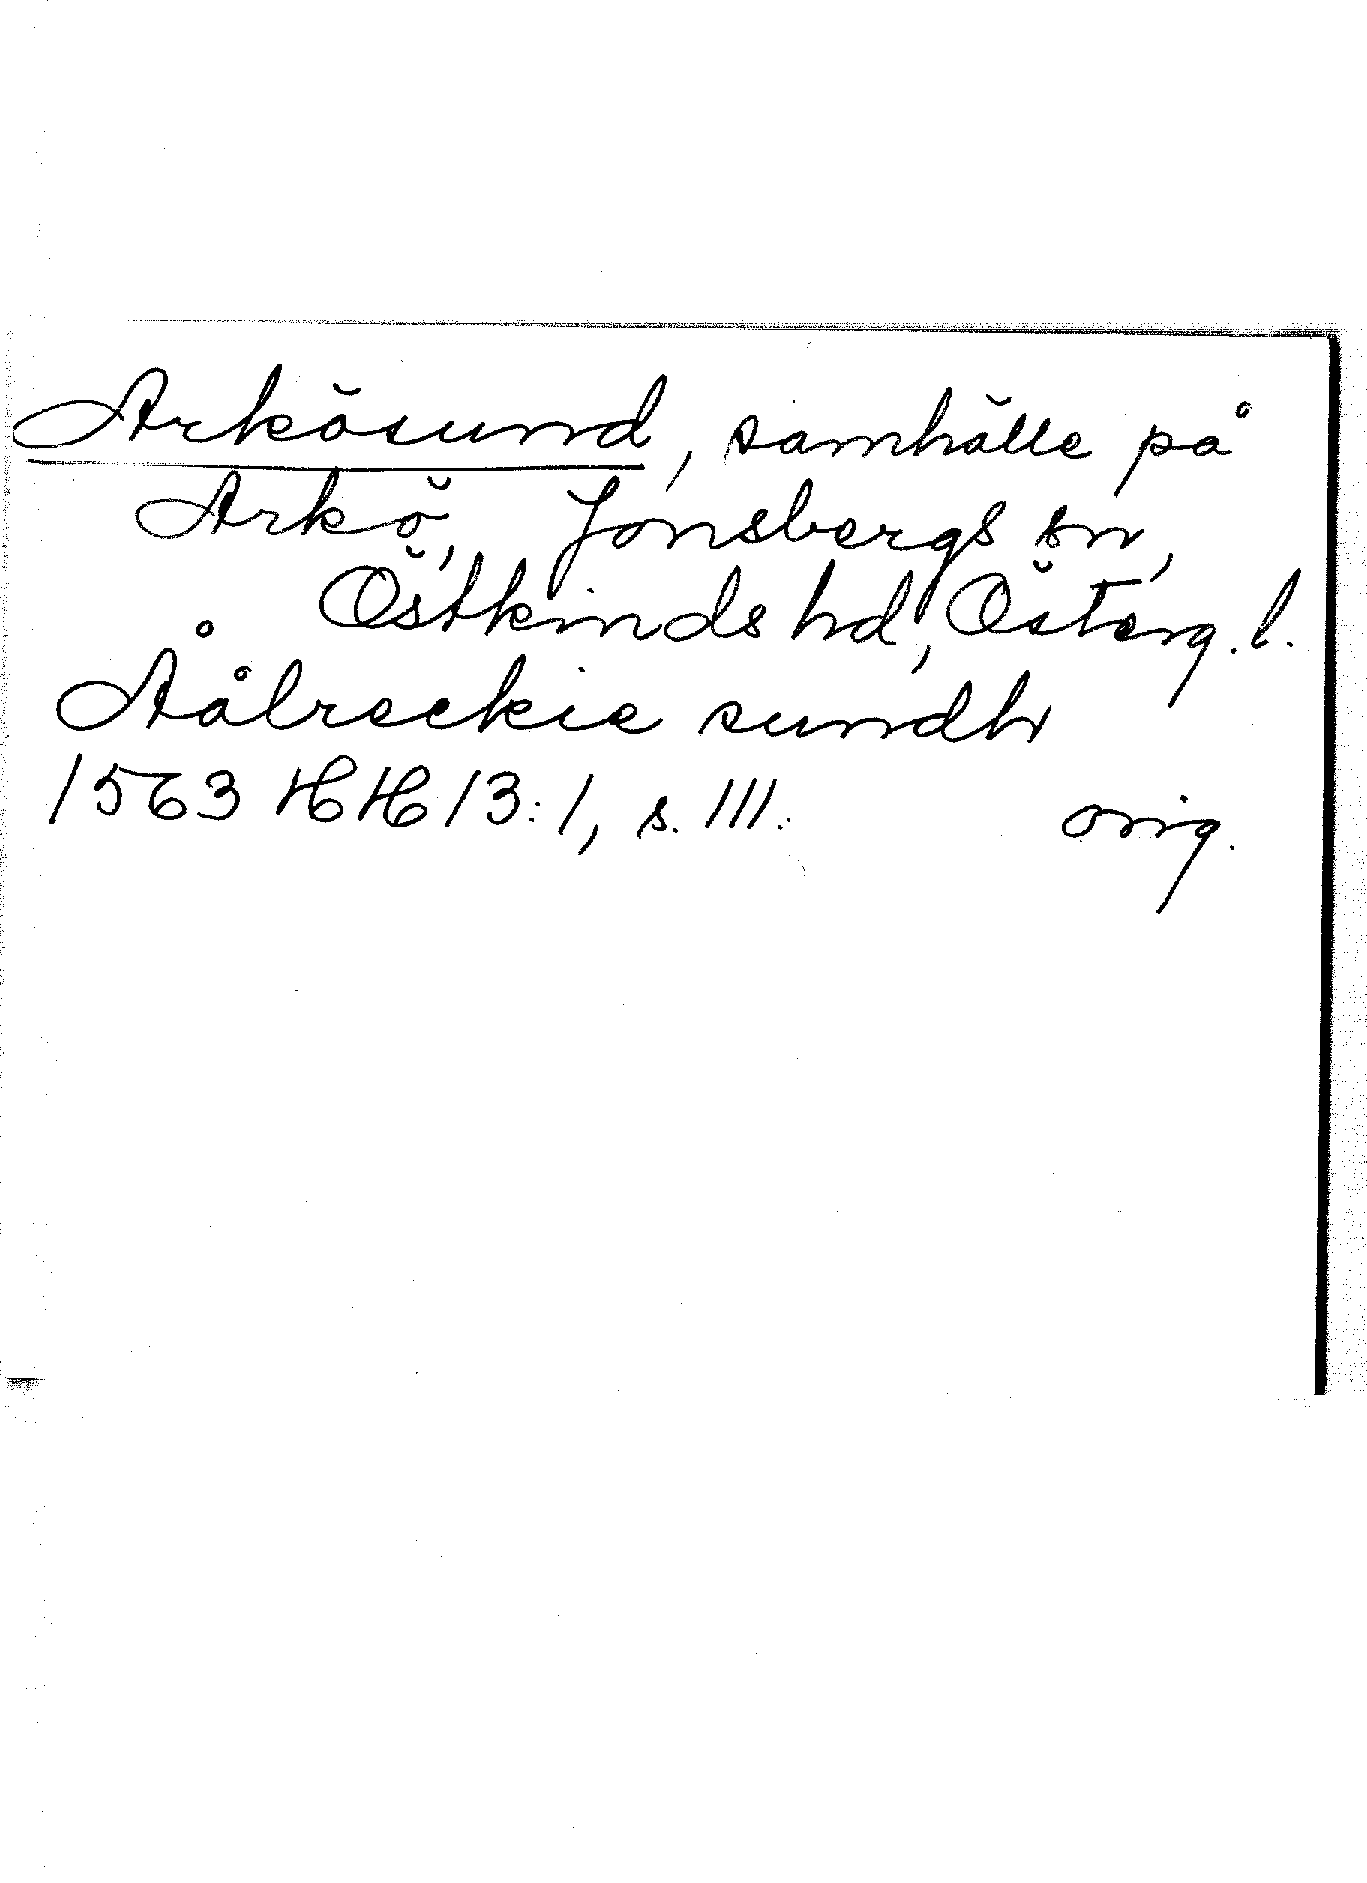 Arkösund, samhälle på
Arkö, Jonsbergs sn,
Östkinds hd, Österg. l.
Åålreckie sundh
1563 HH 13:1, s. 111. orig.